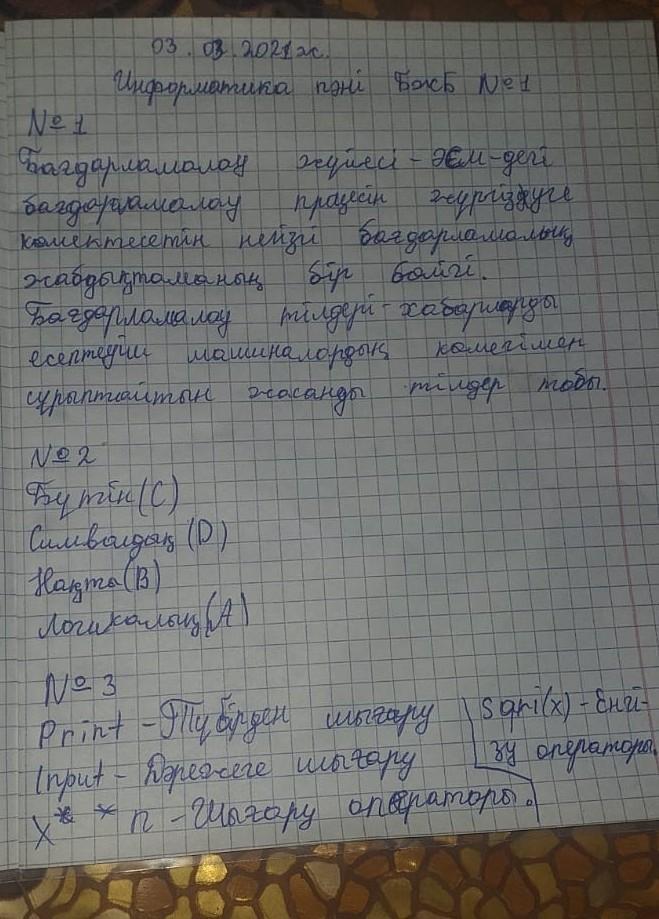 03.03.2021ж.
Информатика пәні БжБ №1
№1
Бағдарламалау жүйесі - ЭЕМ-дегі
бағдарламалау процесін жүргізуге
көмектесетін негізгі бағдарламалық
жабдықтаманың бір бөлігі.
Бағдарламалау тілдері - хабарларды
есептеуіш машиналардың көмегімен
сұрыптайтын жасанды тілдер тобы.
№2
Бүтін (C)
Символдық (D)
Нақты (B)
Логикалық (A)
№3
Print - Түбірден шығару
Input - Дәрежеге шығару
x* * n - Шығару операторы.
sqri(x) - Енгі-
зу операторы.